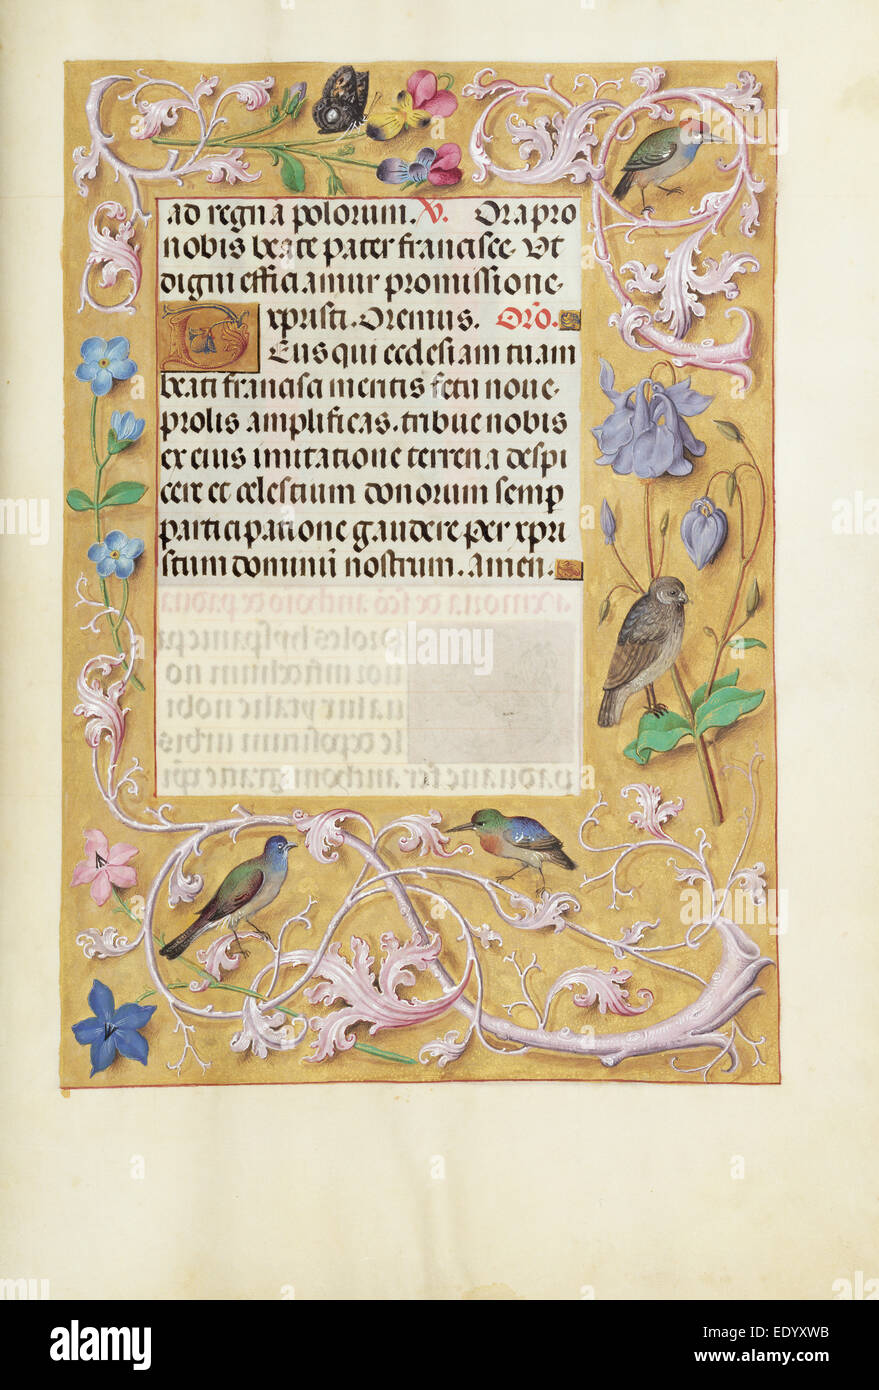 ad regna polorum. V. Ora pro
nobis beate pater francisce. Ut
digni efficiamur promissione.
xpristi. Oremus. Oro.
Deus qui ecclesiam tuam
beati francisci mentis fetu noue
prolis amplificas. tribue nobis
ex eius imitatione terrena despi
cere et celestium donorum semp
participatione gaudere per xpri
stum dominū nostrum. Amen.
alamy stock photo
alamy
Image ID: EDYXWB
www.alamy.com